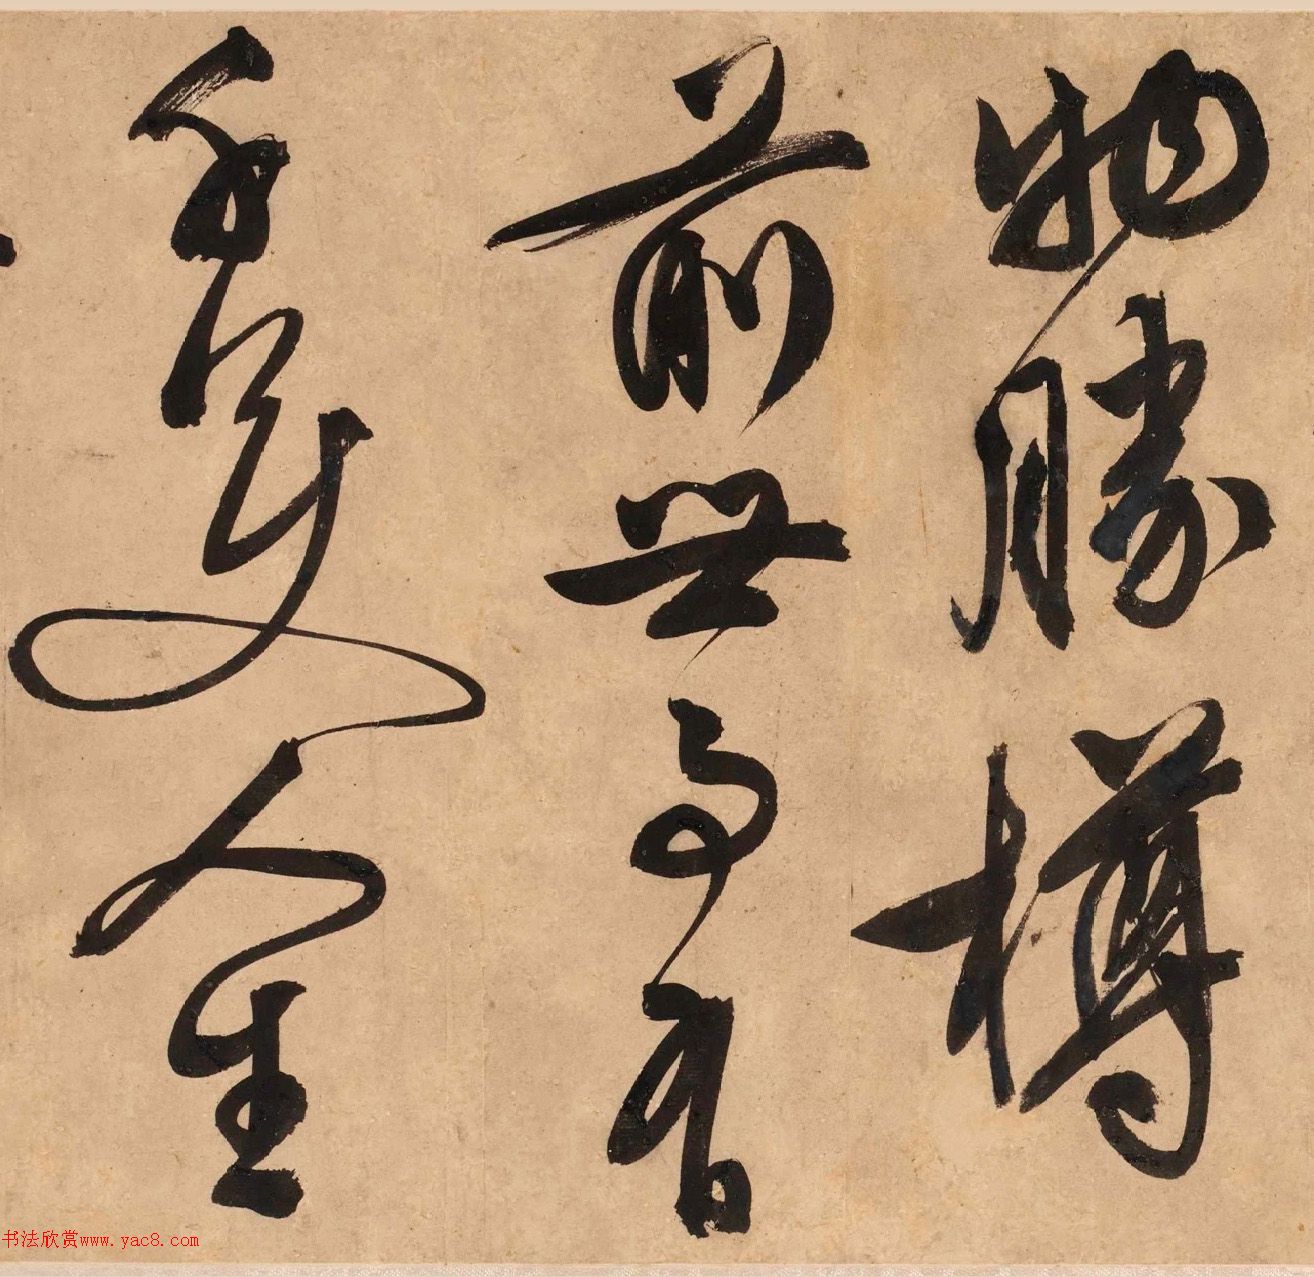 物勝樽
前世事有
千變人生
书法欣赏www.yac8.com